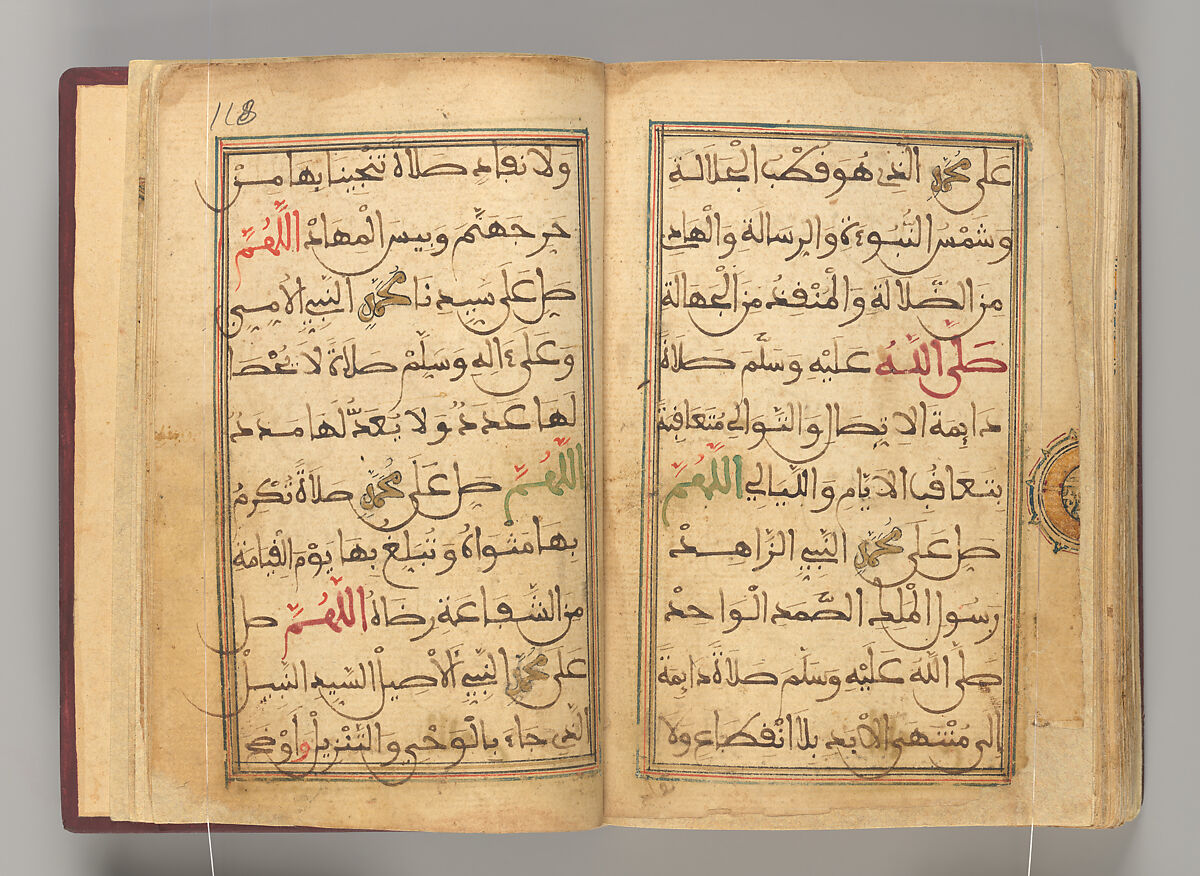 على محمد الذي هو قطب الجلالة
وشمس النبوءة والرسالة والهادي
من الضلالة والمنقذ من الجهالة
صلى الله عليه وسلم صلاة
دايمة الاتصال والتوالي متعاقبة
بتعاقب الايام والليالي اللهم
صل على محمد النبي الزاهد
رسول الملك الصمد الواحد
صلى الله عليه وسلم صلاة دايمة
الى منتهى الابد بلا انقطاع ولا
118
ولا نفاد صلاة تنجينا بها من
حر جهنم وبيس المهاد اللهم
صل على سيدنا محمد النبي الامي
وعلى ءاله وسلم صلاة لا يحصا
لها عدد ولا يعد لها مدد
اللهم صل على محمد صلاة تكرم
بها مثواه وتبلغ بها يوم القيامة
من الشفاعة رضاه اللهم صل
على محمد النبي الاصيل السيد النبيل
الذي جاء بالوحي والتنزيل واوضح